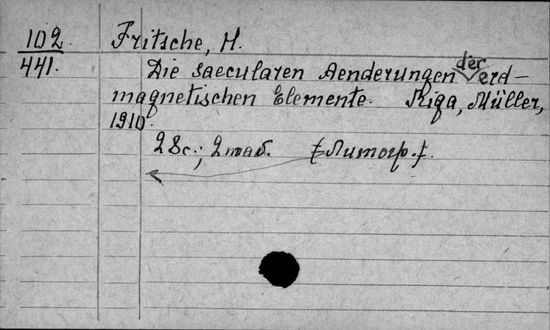 102
441.
Fritsche, H.
Die saecularen Aenderungen der erd-
magnetischen Elemente. Riga, Müller,
1910.
28с.; 2таб. {Литогр.}.